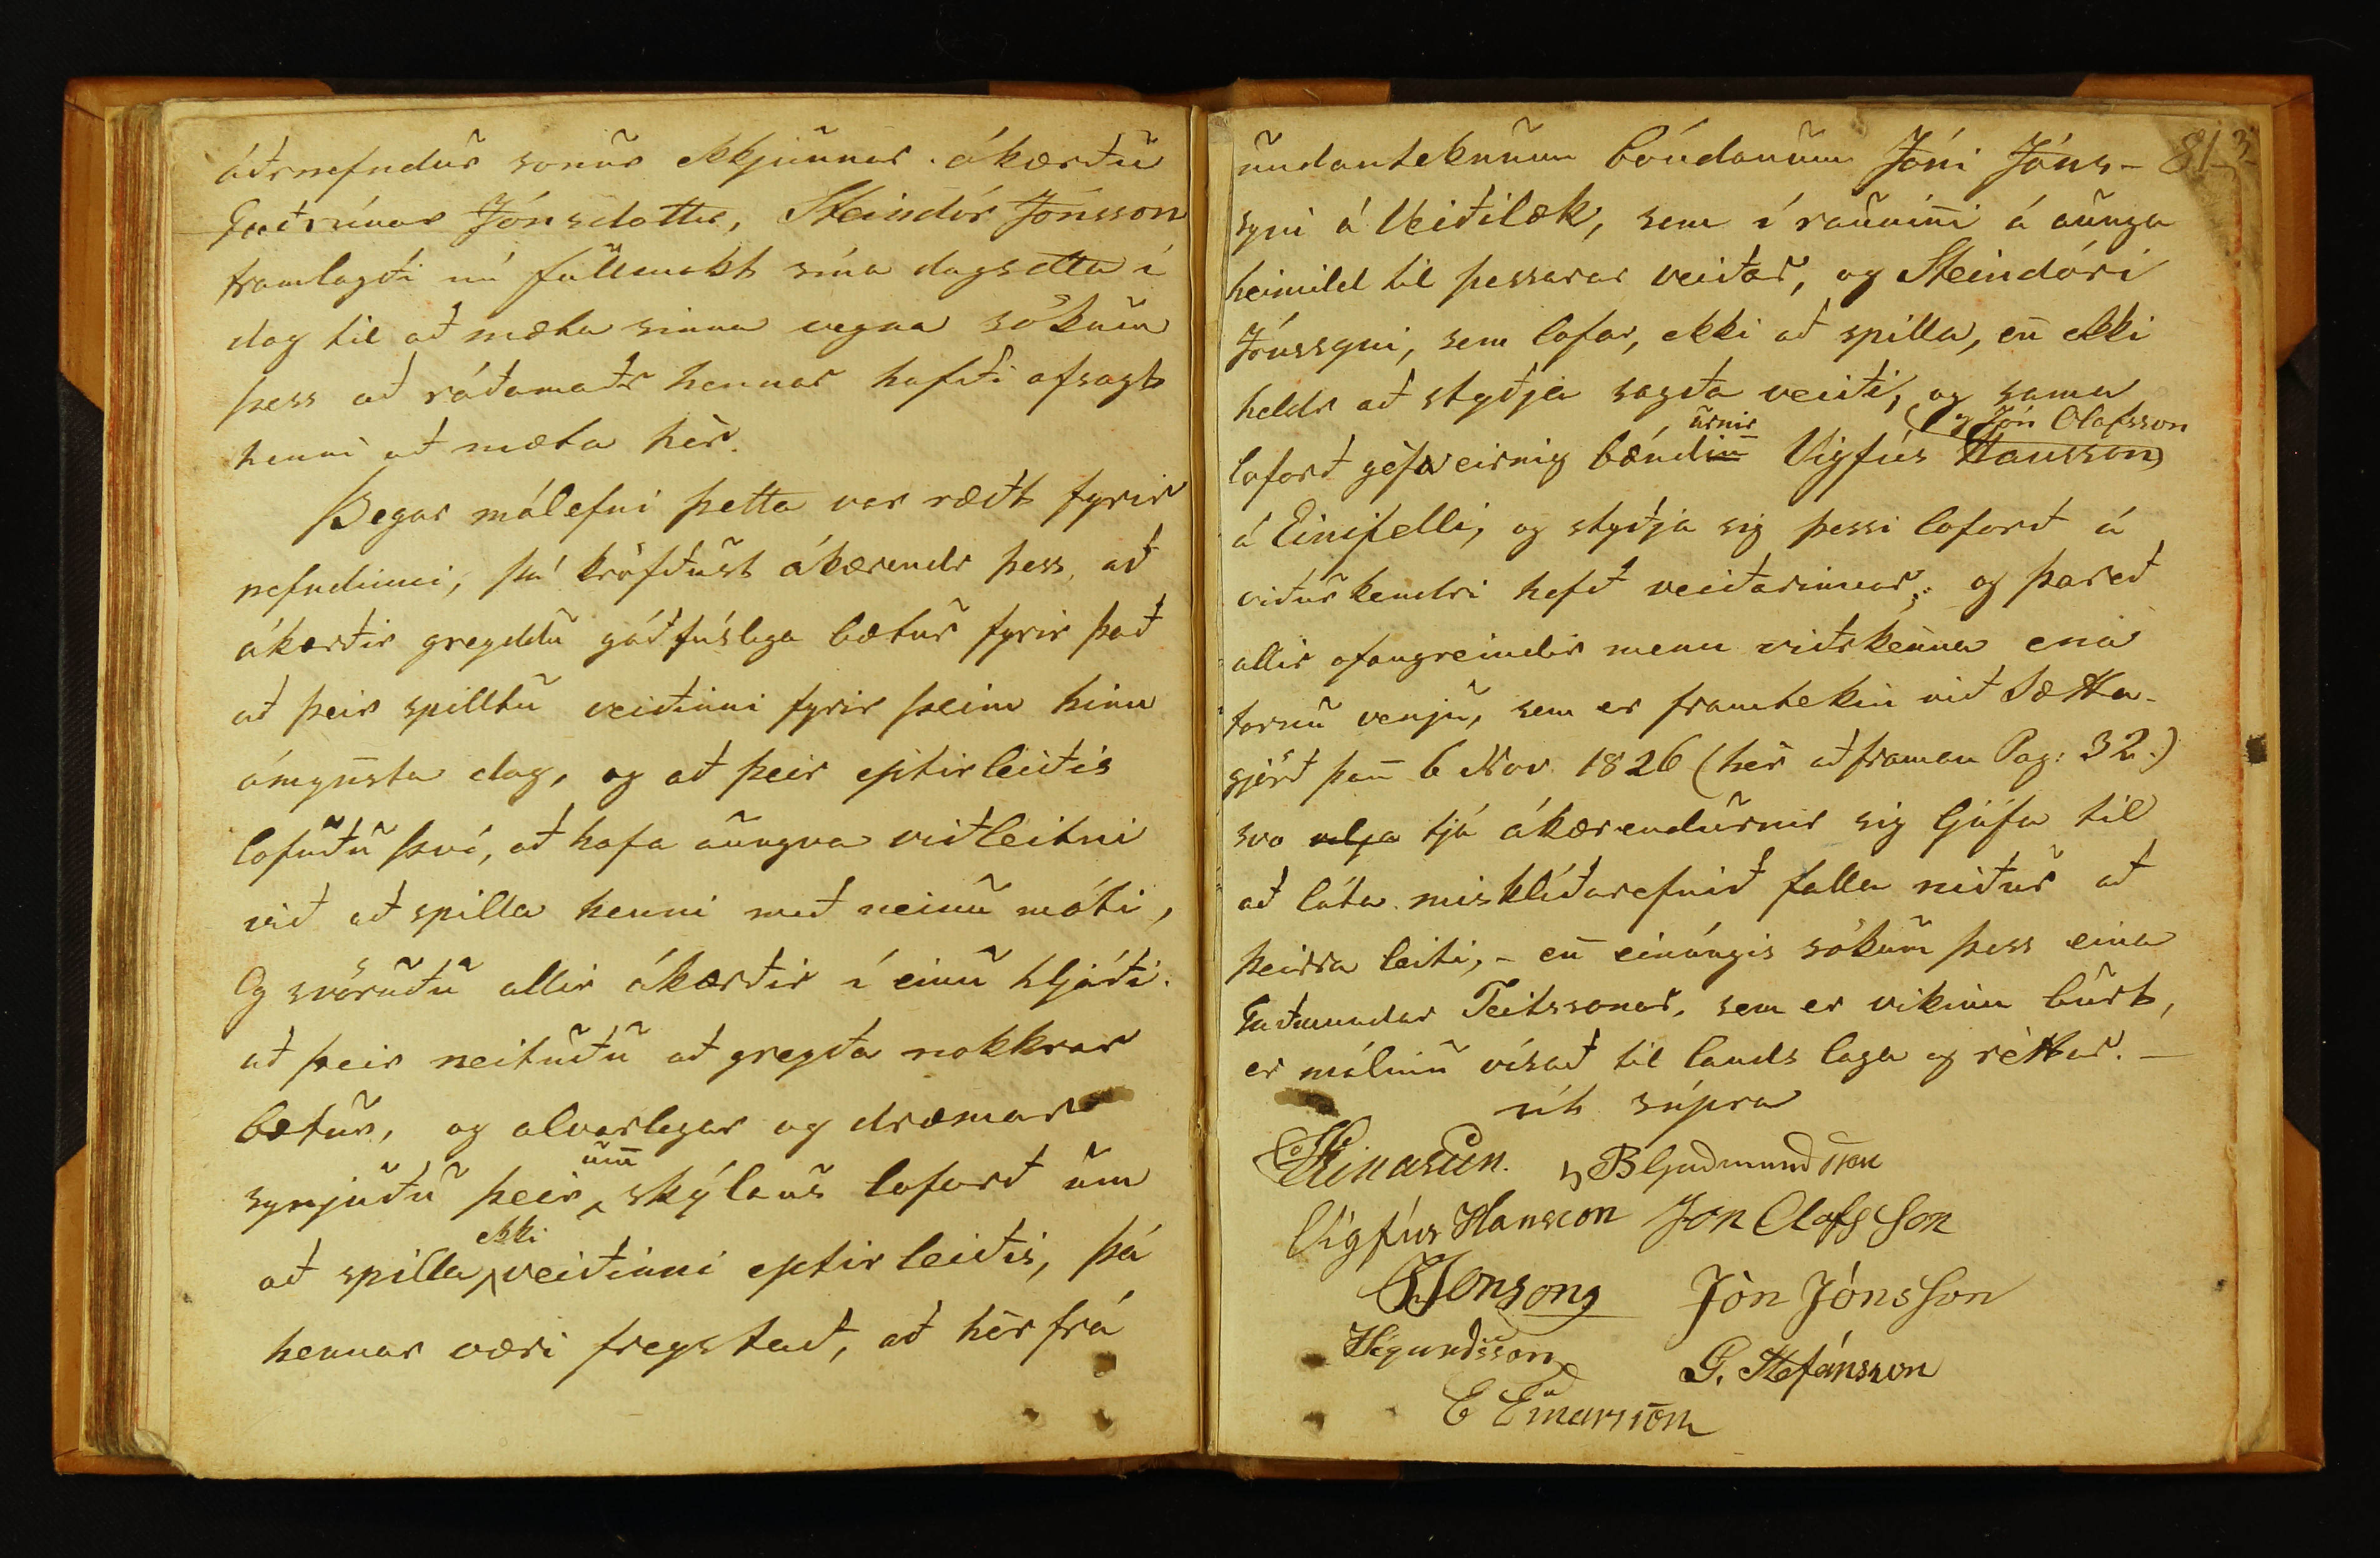 áðrnefndur sonur ekkjunnar ákærðu
Guðrúnar Jónsdottur, Steindór Jónsson
framlagði nú fullmakt sína dagsetta í
dag til að mæta sinna vegna sökum
þess að ráðamaðr hennar hafði afsagt
henni að mæta hèr.
Þegar málefni þetta var rædt fyrir
nefndinni, þá kröfðust ákærendr þess, að
ákærðir greyddu góðfúslega bætur fyrir það
að þeir spilltu veiðinni fyrir þeim hinn
ámynsta dag, og að þeir eptirleiðis
lofuðu því, að hafa aungva viðleitni
við að spilla henni með neinu móti,
Og svöruðu allir ákærðir í einu hljóði.
að þeir neituðu að greyða nokkrar
bætur, og alvarlegar og dræmar
synjuðu þeir um skýlaus loforð um
að spilla ekki veiðinni eptirleiðis, þá
hennar væri freystað, að hèr frá
81
undanteknum bóndanum Jóni Jóns-
syni á Veiðilæk, sem í rauninni á aunga
heimild til þessarar veiðar, og Steindóri
Jónssyni, sem lofar, ekki að spilla, en ekki
heldr að styðja sagða veiði, og sama
loforð gefa eirnig bændurnir Vigfús Hansson og Jón Olafsson
á Einifelli, og styðja sig þessi loforð á
viðurkendri hefð veiðarinnar; og þareð
allir ofangreindir menn viðrkenna ena
fornu venju, sem er framtekin við Sætta-
gjörð þann 6 Nov. 1826 (hèr að framan Pag: 32.)
svo vilja tjá ákærendurnir sig ljúfa til
að láta misklíðarefnið falla niður að
þeirra leiti, - en einúngis sökum þess eina
Guðmundar Teitssonar, sem er vikinn burt,
er málinu vísað til lands laga og rèttar. -
út súpra
B Gudmundsson
Vigfús Hanson Jon Olafsson
Jónsson Jón Jónsson
G. Stefánsson
E Einarsson